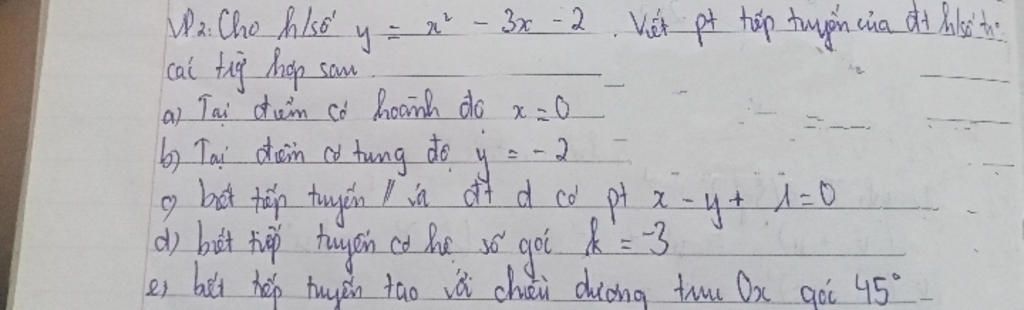 VD2: Cho h/số y = x² - 3x - 2. Viết pt tiếp tuyến của đt h/số
các trg hợp sau
a) Tại điểm có hoành độ x = 0
b) Tại điểm có tung độ y = -2
c) biết tiếp tuyến // và đt d có pt x - y + 1 = 0
d) biết tiếp tuyến có hệ số góc k = -3
e) biết tiếp tuyến tạo với chiều dương trục Ox góc 45°